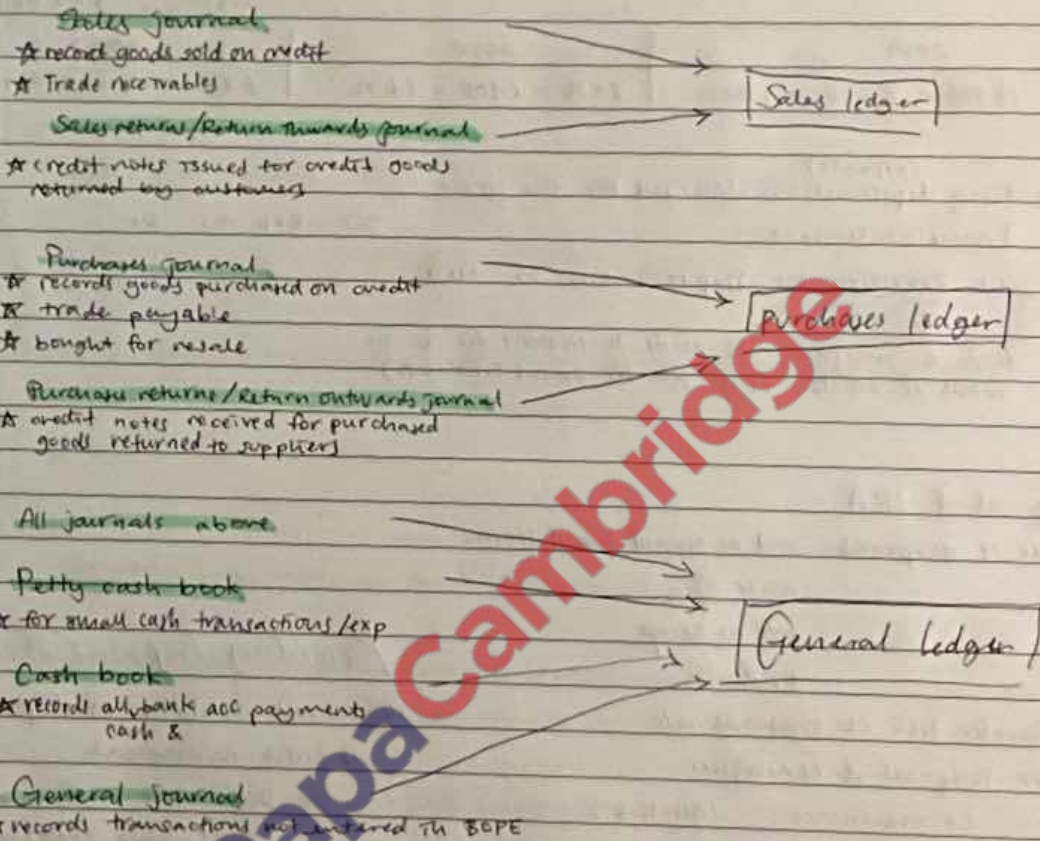 Sales journal
☆ record goods sold on credit
☆ Trade receivables
Sales ledger
Sales returns/Return inwards journal
☆ credit notes issued for credit goods
returned by customers
Purchases journal
☆ records goods purchased on credit
☆ trade payable
☆ bought for resale
Purchases ledger
Purchases returns/Return outwards journal
☆ credit notes received for purchased
goods returned to suppliers
All journals above
Petty cash book
☆ for small cash transactions/exp
General ledger
Cash book
☆ records all bank acc payments
cash &
General journal
records transactions not entered in BOPE
apaCambridge